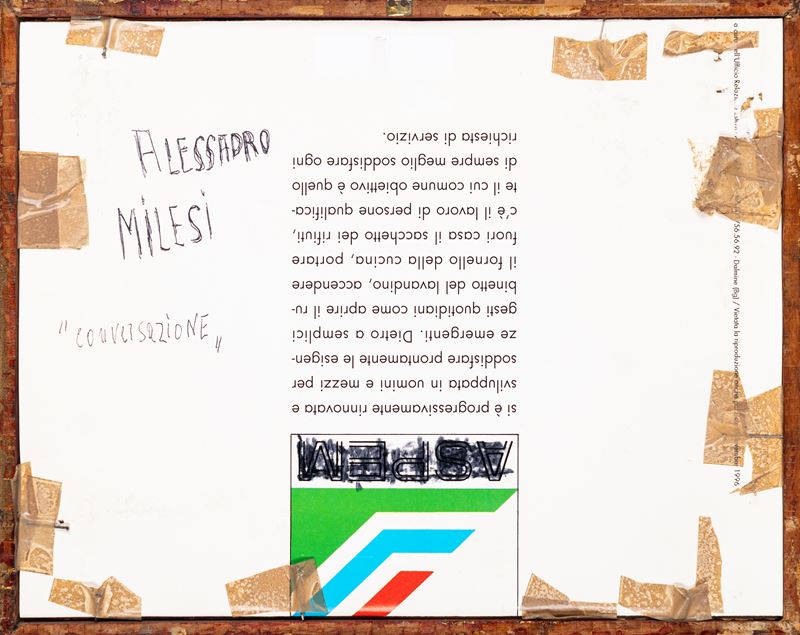 ALESSADRO
MILESI
"conversazione"
ASPEM
si è progressivamente rinnovata e
sviluppata in uomini e mezzi per
soddisfare prontamente le esigen-
ze emergenti. Dietro a semplici
gesti quotidiani come aprire il ru-
binetto del lavandino, accendere
il fornello della cucina, portare
fuori casa il sacchetto dei rifiuti,
c'è il lavoro di persone qualifica-
te il cui comune obiettivo è quello
di sempre meglio soddisfare ogni
richiesta di servizio.
a cura dell'Ufficio 56.56.92 - Dalmine (Bg) / Vietata la riproduzione 1996